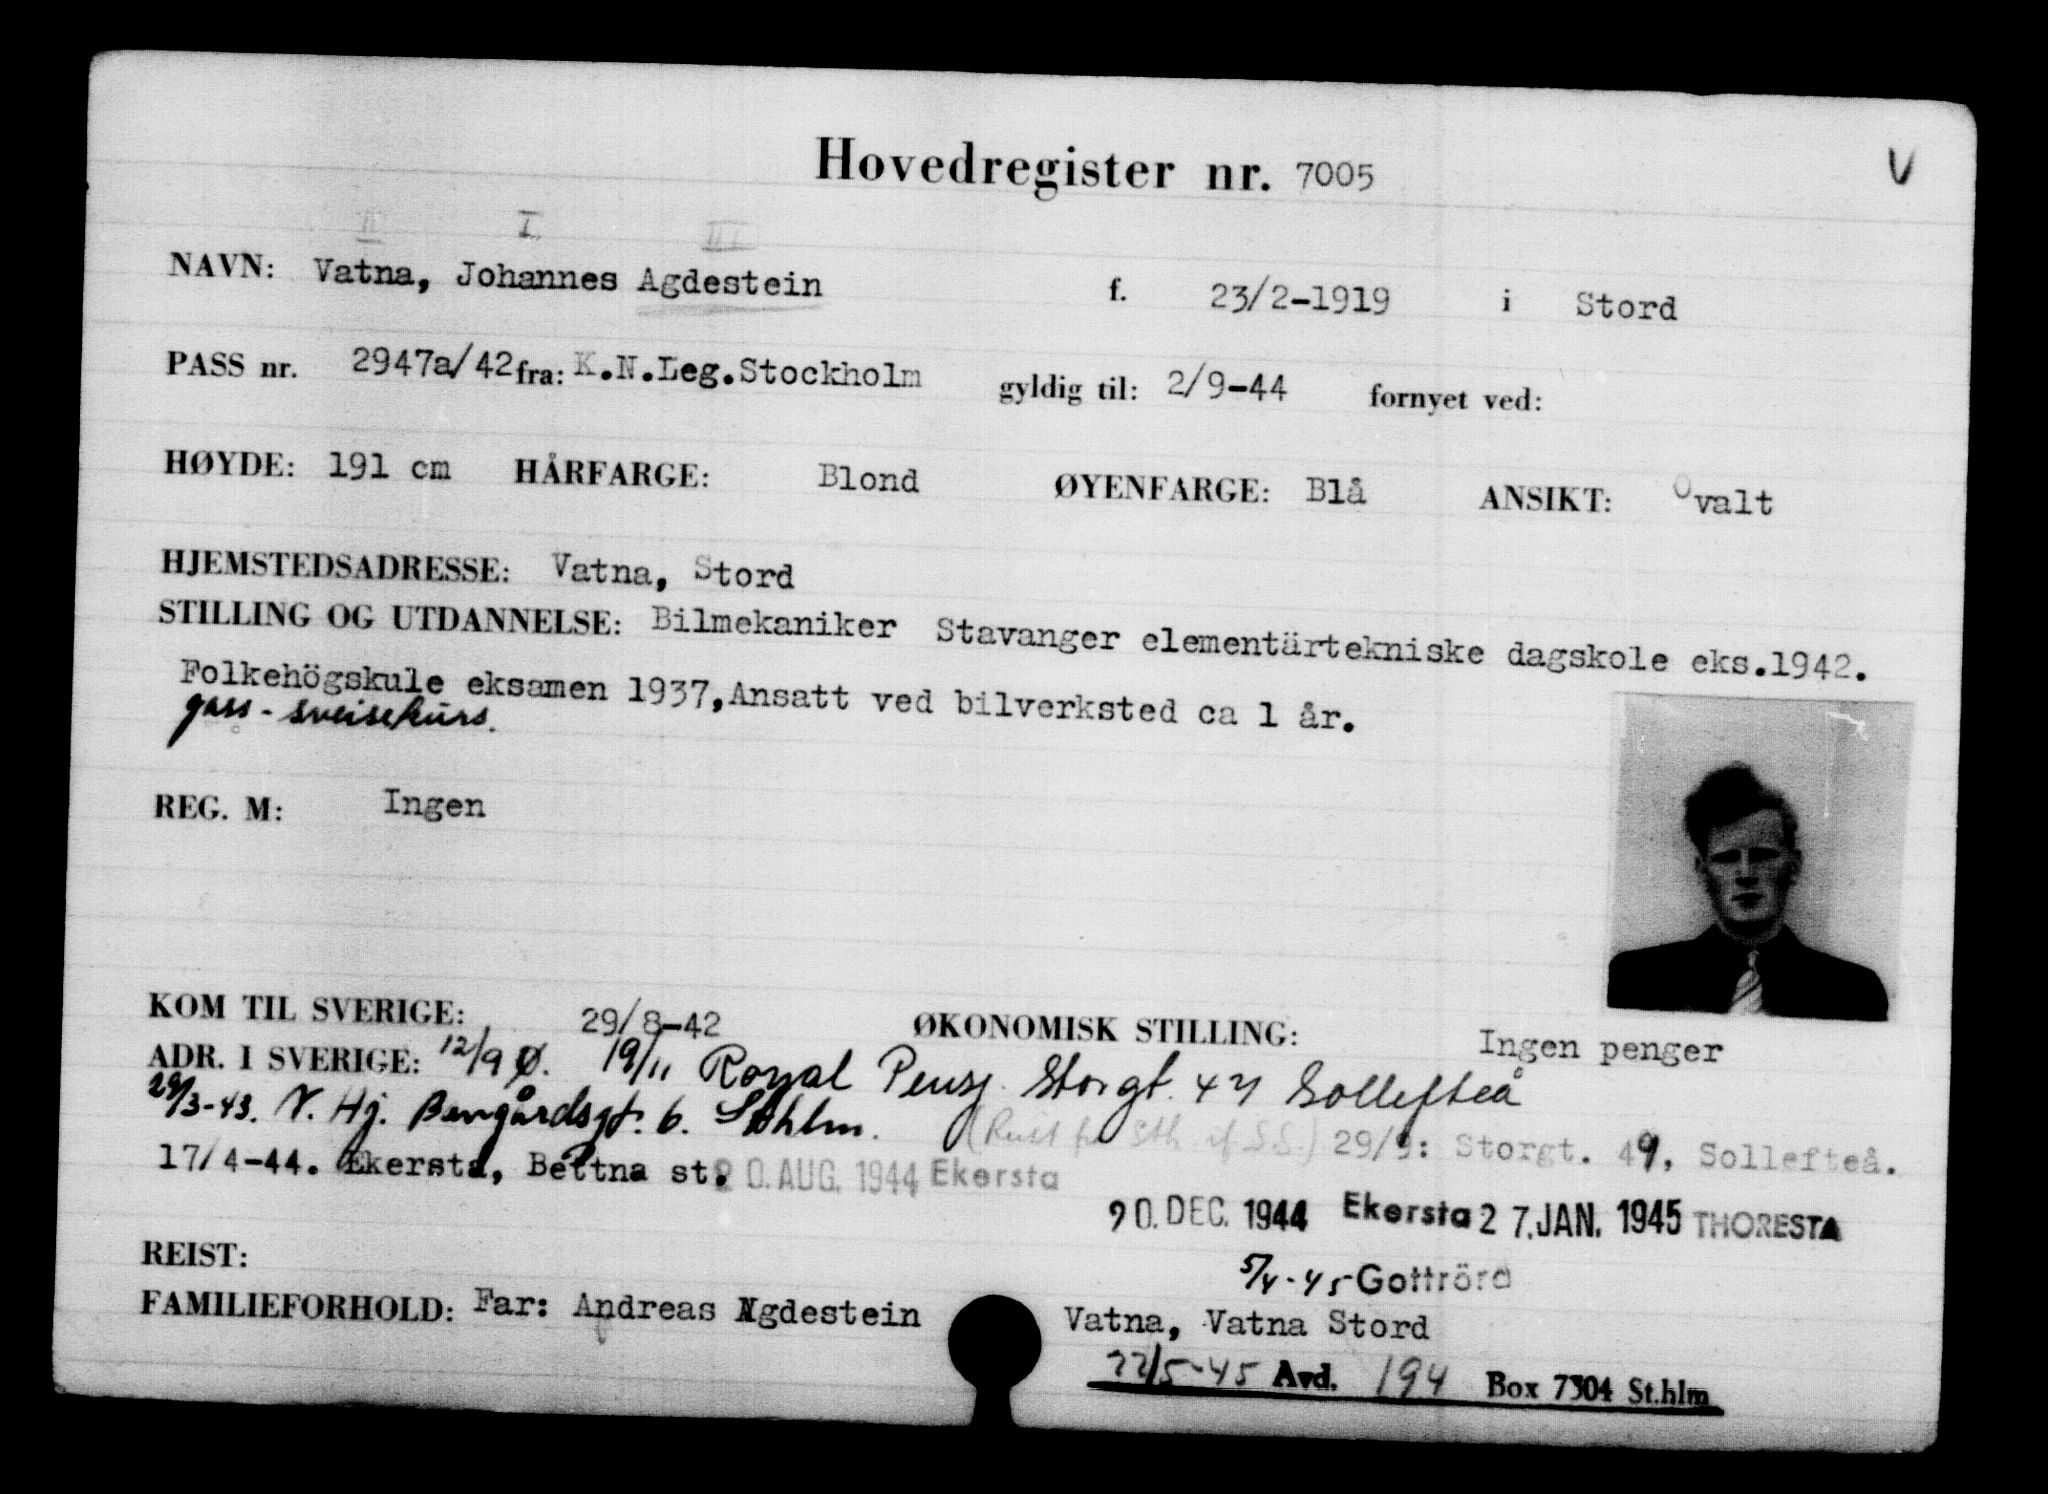 Hovedregister nr. 7005
V
II I III
NAVN: Vatna, Johannes Agdestein f. 23/2-1919 i Stord
PASS nr. 2947a/42 fra: K.N.Leg.Stockholm gyldig til: 2/9-44 fornyet ved:
HØYDE: 191 cm HÅRFARGE: Blond ØYENFARGE: Blå ANSIKT: Ovalt
HJEMSTEDSADRESSE: Vatna, Stord
STILLING OG UTDANNELSE: Bilmekaniker Stavanger elementärtekniske dagskole eks.1942.
Folkehögskule eksamen 1937,Ansatt ved bilverksted ca 1 år.
gass-sveisekurs.
REG. M: Ingen
KOM TIL SVERIGE: 29/8-42 ØKONOMISK STILLING: Ingen penger
ADR. I SVERIGE: 12/9 Ø. 19/11 Royal Pensj. Storgt. 47 Sollefteå
29/3-43. N. Hj. Sthlm. 29/9: Storgt. 49, Sollefteå.
17/4-44. Ekersta, Bettna st. 20. AUG. 1944 Ekersta
20. DEC. 1944 Ekersta 27. JAN. 1945 THORESTA
REIST: 5/4-45 Gottröra
FAMILIEFORHOLD: Far: Andreas Agdestein Vatna, Vatna Stord
22/5-45 Avd. 194 Box 7304 St.hlm